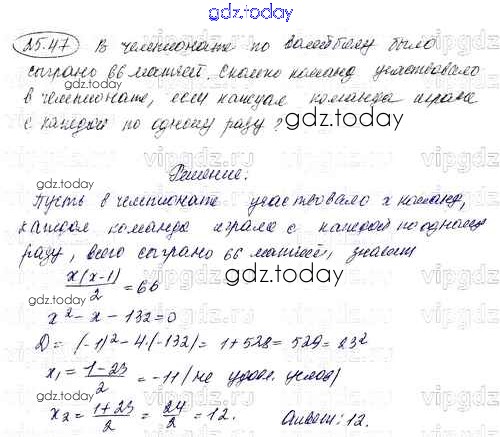 gdz.today
25.47 В чемпионате по волейболу было
сыграно 66 матчей. Сколько команд участвовало
в чемпионате, если каждая команда играла
с каждой по одному разу?
Решение.
Пусть в чемпионате участвовало x команд,
каждая команда играла с каждой по одному
разу, всего сыграно 66 матчей, значит
x(x-1)/2 = 66
x² - x - 132 = 0
D = (-1)² - 4·(-132) = 1 + 528 = 529 = 23²
x₁ = (1-23)/2 = -11 (не удовл. услов)
x₂ = (1+23)/2 = 24/2 = 12. Ответ: 12.
gdz.today
gdz.today
gdz.today
gdz.today
gdz.today
gdz.today
gdz.today
vipgdz
vipgdz
vipgdz